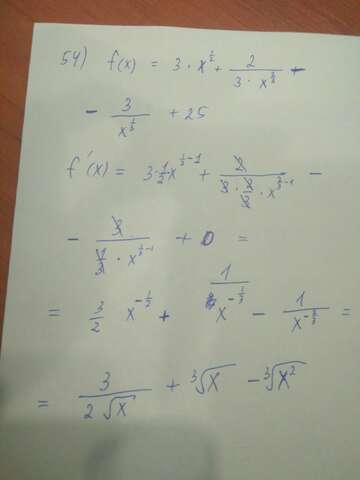 54) f(x) = 3 · x^(1/2) + 2/(3 · x^(2/3)) -
- 3/x^(1/3) + 25
f'(x) = 3·1/2 x^(1/2-1) + 2/(3 · 2/3 · x^(2/3-1)) -
- 3/(1/3 · x^(1/3-1)) + 0 =
= 3/2 x^(-1/2) + 1/x^(-1/3) - 1/x^(-2/3) =
= 3/(2√x) + ∛x - ∛x²